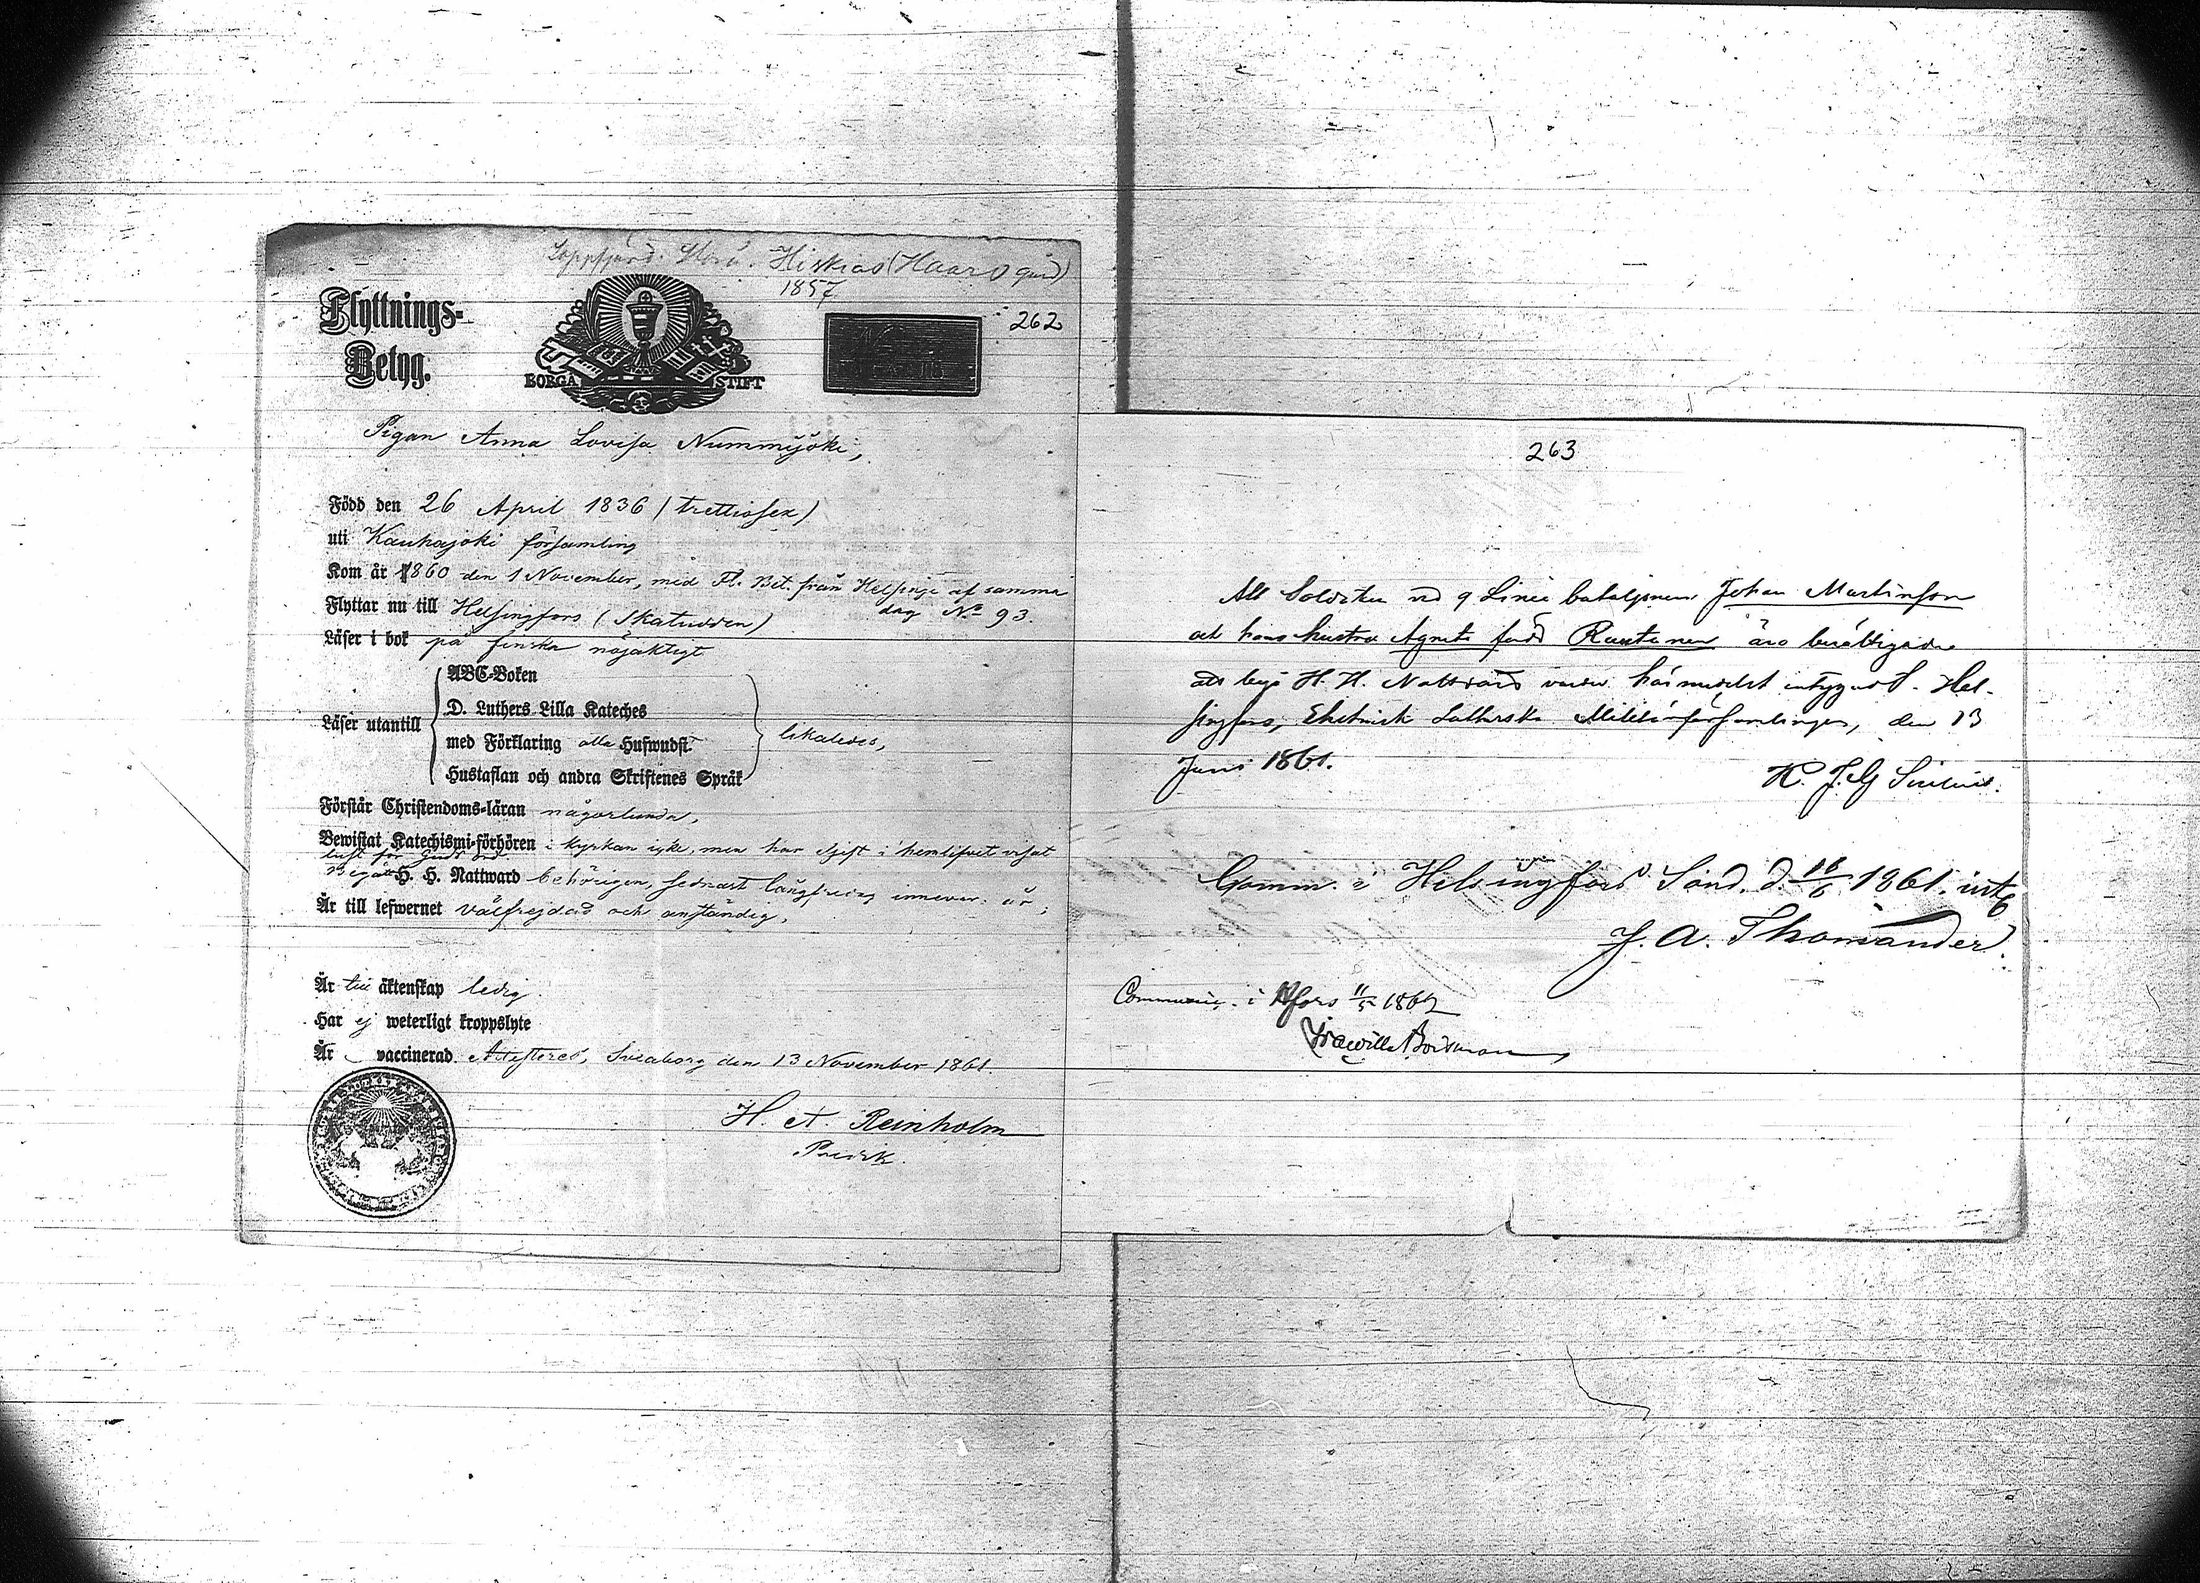 Lappfjärd. Storå. Hiskias (Haaro gård)
1857
262
Flyttnings-
Betyg.
BORGÅ STIFT
Pigan Anna Lovisa Nummijoki,
Född den 26 April 1836 (trettiosex)
uti Kauhajoki församling
Kom år 1860 den 1 November, med Fl. Bet. från Helsinge af samma
dag No 93.
Flyttar nu till Helsingfors (Skatudden)
Läser i bok på finska nöjaktigt
Läser utantill
ABC-Boken
D. Luthers Lilla Kateches
med Förklaring alla Hufwudst.
Hustaflan och andra Skriftenes Språk
likaledes,
Förstår Christendoms-läran någorlunda,
Bewistat Katechismi-förhören i kyrkan icke, men har eljest i hemlifvet visat
lust för Guds ord
Begått H. H. Nattward behörigen, sednast långfredag innevar. år;
Är till lefwernet välfrejdad och anständig,
Är till äktenskap ledig.
Har ej weterligt kroppslyte
Är vaccinerad. Attesteras, Sveaborg den 13 November 1861.
H. A. Reinholm
Predik.
263
Att Soldaten vid 9 Linie bataljonen Johan Martinson
och hans hustru Agneta född Rautanen äro berättigade
att begå H. H. Nattvard varder härmedelst intygadt. Hel-
singfors, Ehstnisk Lutherska Militärförsamlingen, den 13
Juni 1861.
K. J. G
Comm. i Helsingfors Sönd. d. 16/6 1861. int.
J. A. Thomander.
Communic. i Hfors 11/5 1862